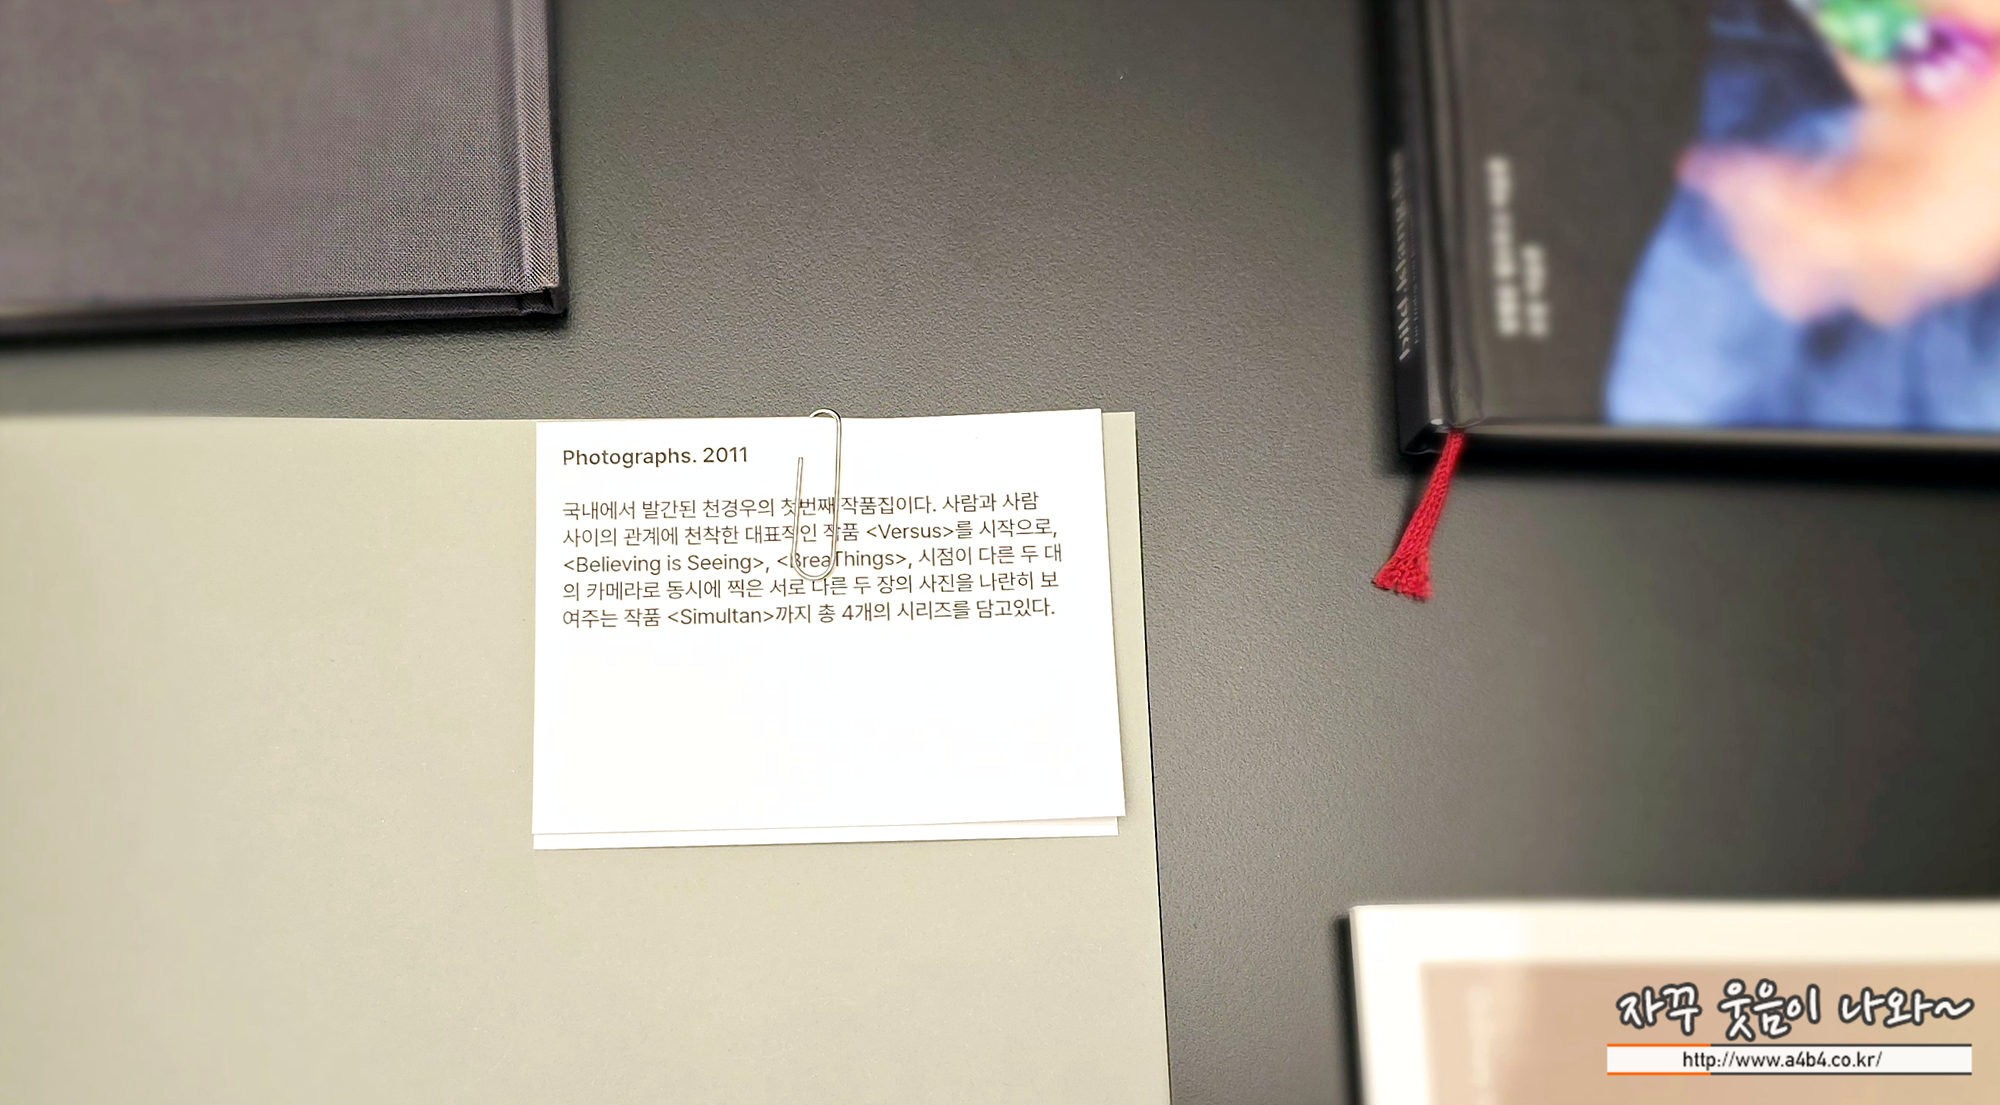 Photographs. 2011
국내에서 발간된 천경우의 첫번째 작품집이다. 사람과 사람
사이의 관계에 천착한 대표적인 작품 <Versus>를 시작으로,
<Believing is Seeing>, <BreaThings>, 시점이 다른 두 대
의 카메라로 동시에 찍은 서로 다른 두 장의 사진을 나란히 보
여주는 작품 <Simultan>까지 총 4개의 시리즈를 담고있다.
자꾸 웃음이 나와~
http://www.a4b4.co.kr/